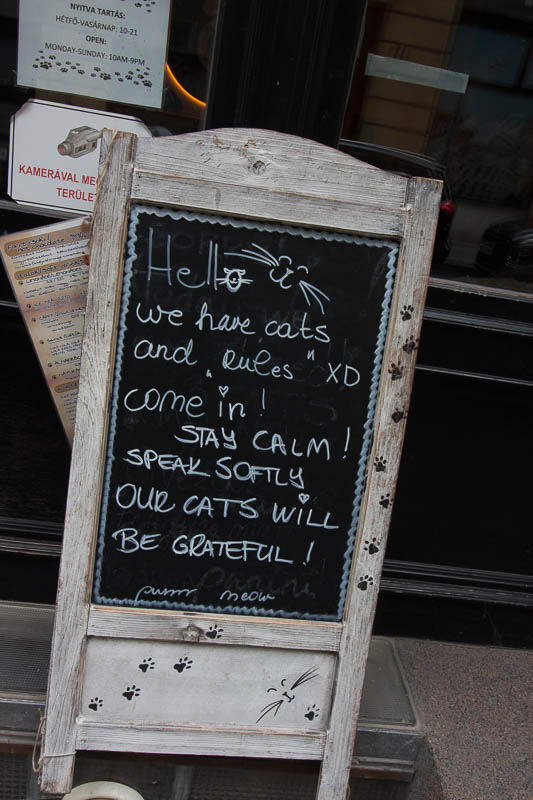 NYITVA TARTÁS:
HÉTFŐ-VASÁRNAP: 10-21
OPEN:
MONDAY-SUNDAY: 10AM-9PM
KAMERÁVAL
TERÜLE
Hello
we have cats
and „Rules" XD
come in!
STAY CALM!
SPEAK SOFTLY
OUR CATS WILL
BE GRATEFUL!
purrr meow